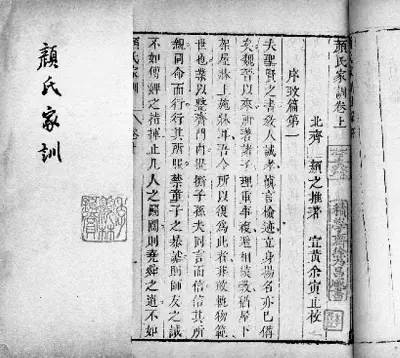 顏氏家訓卷上
北齊 顏之推著 宜黃
序致篇第一
夫聖賢之書教人誠孝慎言檢迹立身揚名亦已備
矣魏晉以來所著諸子理重事複遞相模斆猶屋下
架屋牀上施牀耳吾今所以復為此者非敢軌物範
世也業以整齊門內提撕子孫夫同言而信信其所
親同命而行行其所服禁童子之暴謔則師友之誡
不如傅婢之指揮止凡人之鬭鬩則堯舜之道不如
顏氏家訓
顏氏家訓